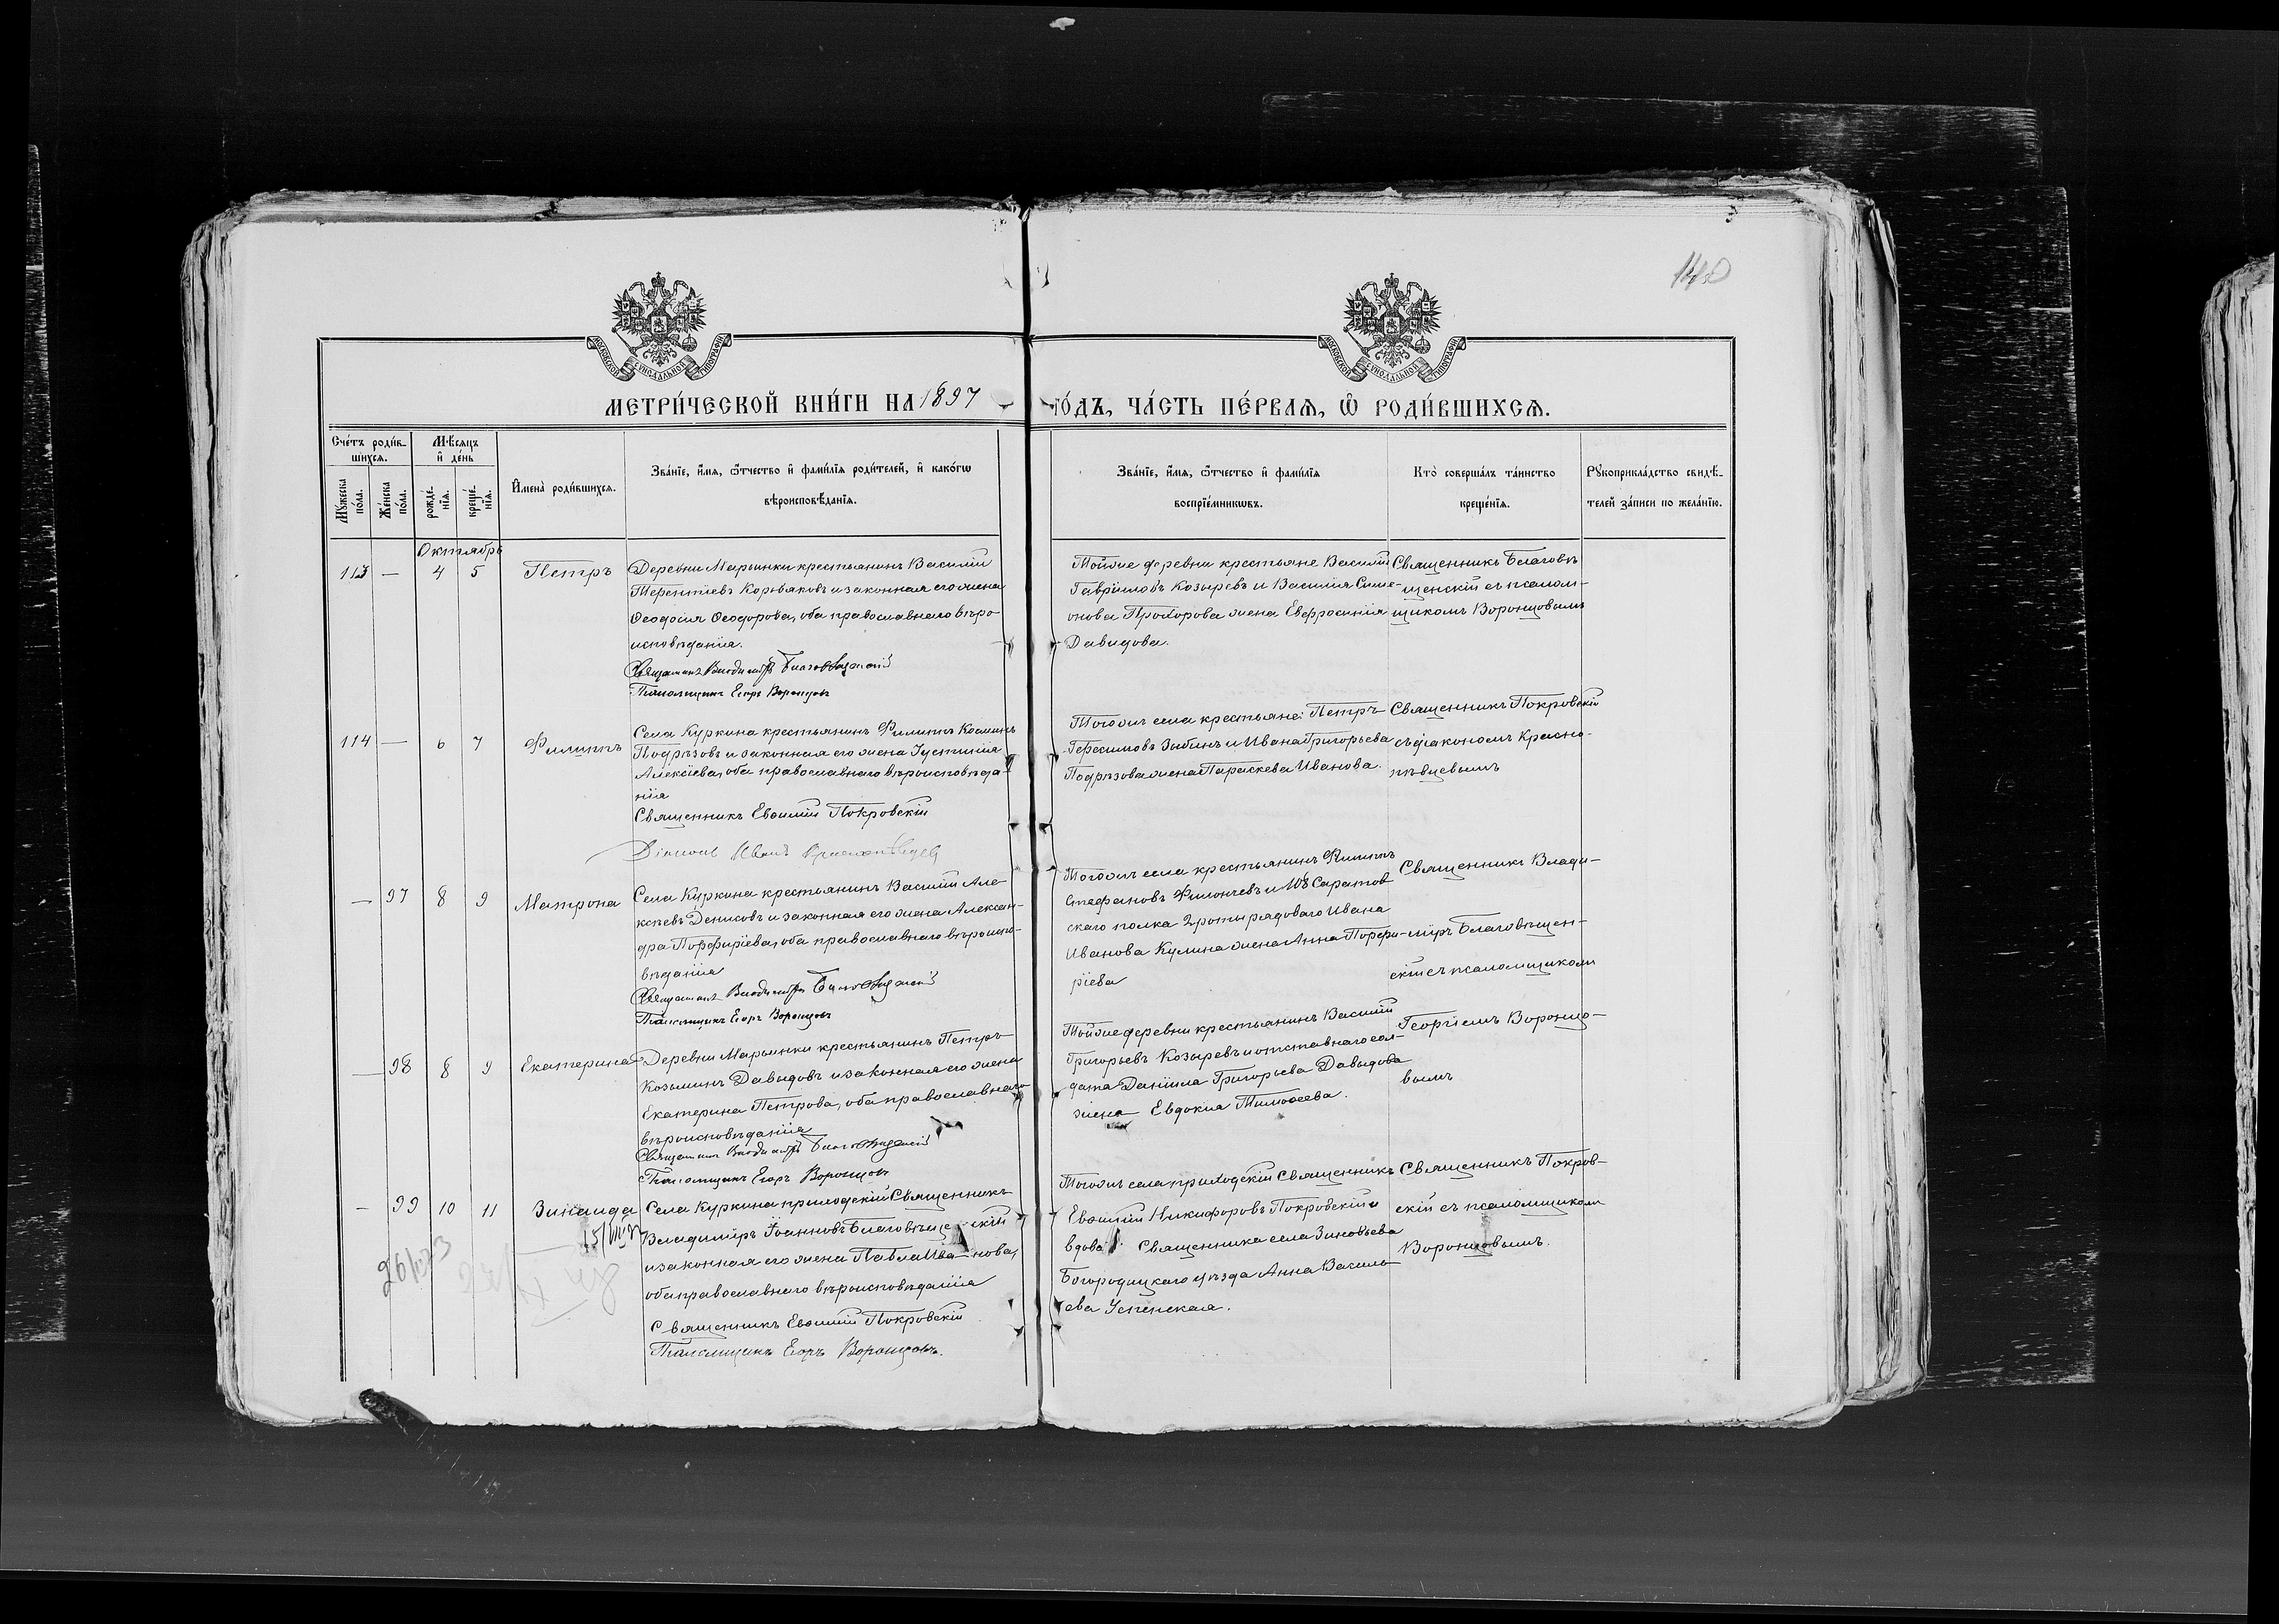 140
МОСКОВСКОЙ СѴНОДАЛЬНОЙ ТИПОГРАФІИ
МОСКОВСКОЙ СѴНОДАЛЬНОЙ ТИПОГРАФІИ
МЕТРИ́ЧЕСКОЙ КНИ́ГИ НА 1897 ГО́ДЪ, ЧА́СТЬ ПЕ́РВАѦ, Ѡ҆ РОДИ́ВШИХСѦ.
Сче́тъ роди́в-
шихсѧ.
Мꙋ́жеска по́ла.
Же́нска по́ла.
Мѣ́сѧцъ
и҆ де́нь
рожде́-
нїѧ.
креще́-
нїѧ.
И҆мена̀ роди́вшихсѧ.
Зва́нїе, и҆́мѧ, ѻ҆́тчество и҆ фамі́лїѧ роди́телей, и҆ како́гѡ
вѣроисповѣ́данїѧ.
Зва́нїе, и҆́мѧ, ѻ҆́тчество и҆ фамі́лїѧ
воспрїе́мникѡвъ.
Кто̀ соверша́лъ та́инство
креще́нїѧ.
Рꙋкоприкла́дство свидѣ́-
телей за́писи по жела́нїю.
Октябрь
113 — 4 5 Петръ
Деревни Марьинки крестьянинъ Василій
Терентіевъ Корьваковъ и законная его жена
Ѳеодосія Ѳеодорова, оба православнаго вѣро-
исповѣданія.
Священникъ Владиміръ Благовѣщенскій
Псаломщикъ Егоръ Воронцовъ
Тойже деревни крестьяне Василій
Гавріиловъ Козыревъ и Василія Симе-
онова Прохорова жена Евфросинія
Давидова.
Священникъ Благовѣ-
щенскій съ псалом-
щикомъ Воронцовымъ
114 — 6 7 Филиппъ
Села Куркина крестьянинъ Филиппъ Косминъ
Подрѣзовъ и законная его жена Іустинія
Алексіева, оба православнаго вѣроисповѣда-
нія
Священникъ Евѳимій Покровскій
Діаконъ Иванъ Краснопѣвцевъ
Тогожъ села крестьяне: Петръ
Герасимовъ Зыбинъ и Ивана Григорьева
Подрѣзова жена Параскева Иванова.
Священникъ Покровскій
съ діакономъ Красно-
пѣвцевымъ
— 97 8 9 Матрона
Села Куркина крестьянинъ Василій Але-
ксѣевъ Денисовъ и законная его жена Алексан-
дра Порфиріева, оба православнаго вѣроиспо-
вѣданія
Священникъ Владиміръ Благовѣщенскій
Псаломщикъ Егоръ Воронцовъ
Тогожъ села крестьянинъ Филиппъ
Стефановъ Филончевъ и 108 Саратов
скаго полка 2 роты рядоваго Ивана
Иванова Кулина жена Анна Порфи-
ріева
Священникъ Влади-
міръ Благовѣщен-
скій съ псаломщикомъ
— 98 8 9 Екатерина
Деревни Марьинки крестьянинъ Петръ
Козьминъ Давыдовъ и законная его жена
Екатерина Петрова, оба православнаго
вѣроисповѣданія
Священникъ Владиміръ Благовѣщенскій
Псаломщикъ Егоръ Воронцовъ
Тойже деревни крестьянинъ Василій
Григорьевъ Козыревъ и отставнаго сол-
дата Даніила Григорьева Давыдова
жена Евдокія Тимоѳеева.
Георгіемъ Воронцо-
вымъ
— 99 10 11 Зинаида
Села Куркина приходскій Священникъ
Владиміръ Іоанновъ Благовѣщенскій
и законная его жена Павла Ива-нова,
оба православнаго вѣроисповѣданія
Священникъ Евѳимій Покровскій
Псаломщикъ Егоръ Воронцовъ.
Тогожъ села приходскій Священникъ
Евѳимій Никифоровъ Покровскій и
вдова Священника села Зиновьева
Богородицкаго уѣзда Анна Василь-
ева Успенская.
Священникъ Покров-
скій съ псаломщикомъ
Воронцовымъ.